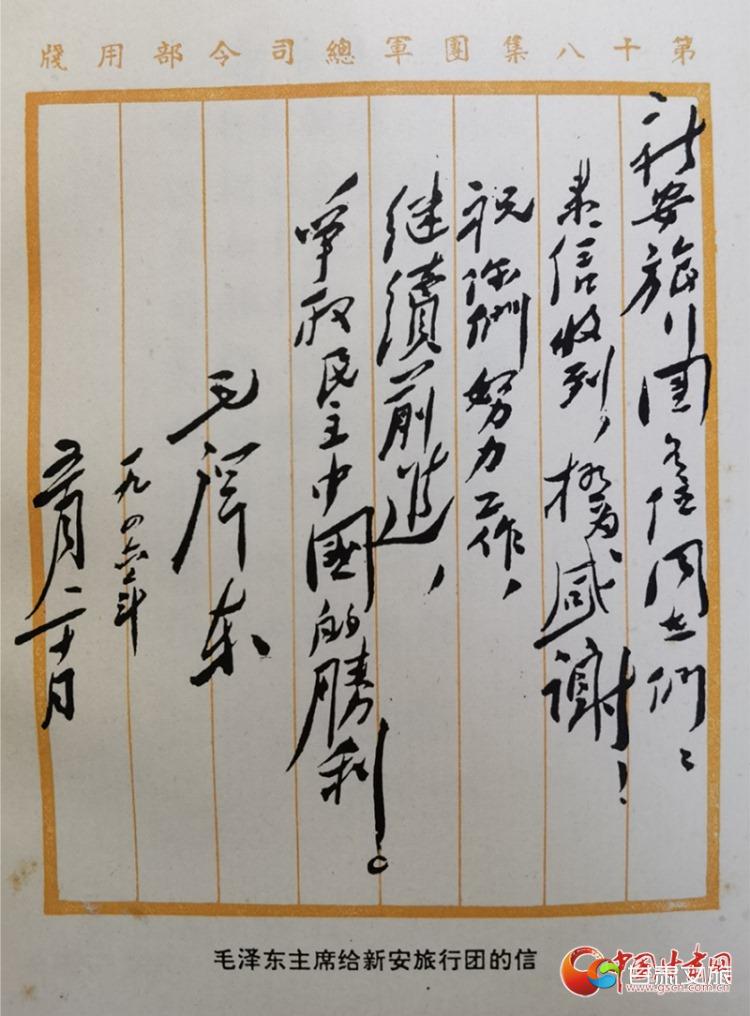 第十八集團軍總司令部用牋
新安旅行團各位同志們：
来信收到，極為感謝！
祝你們努力工作，
继續前進，
爭取民主中國的勝利。
毛澤东
一九四六年
五月二十日
毛泽东主席给新安旅行团的信
中国甘肃网
甘肃文旅
www.gscn.com.cn